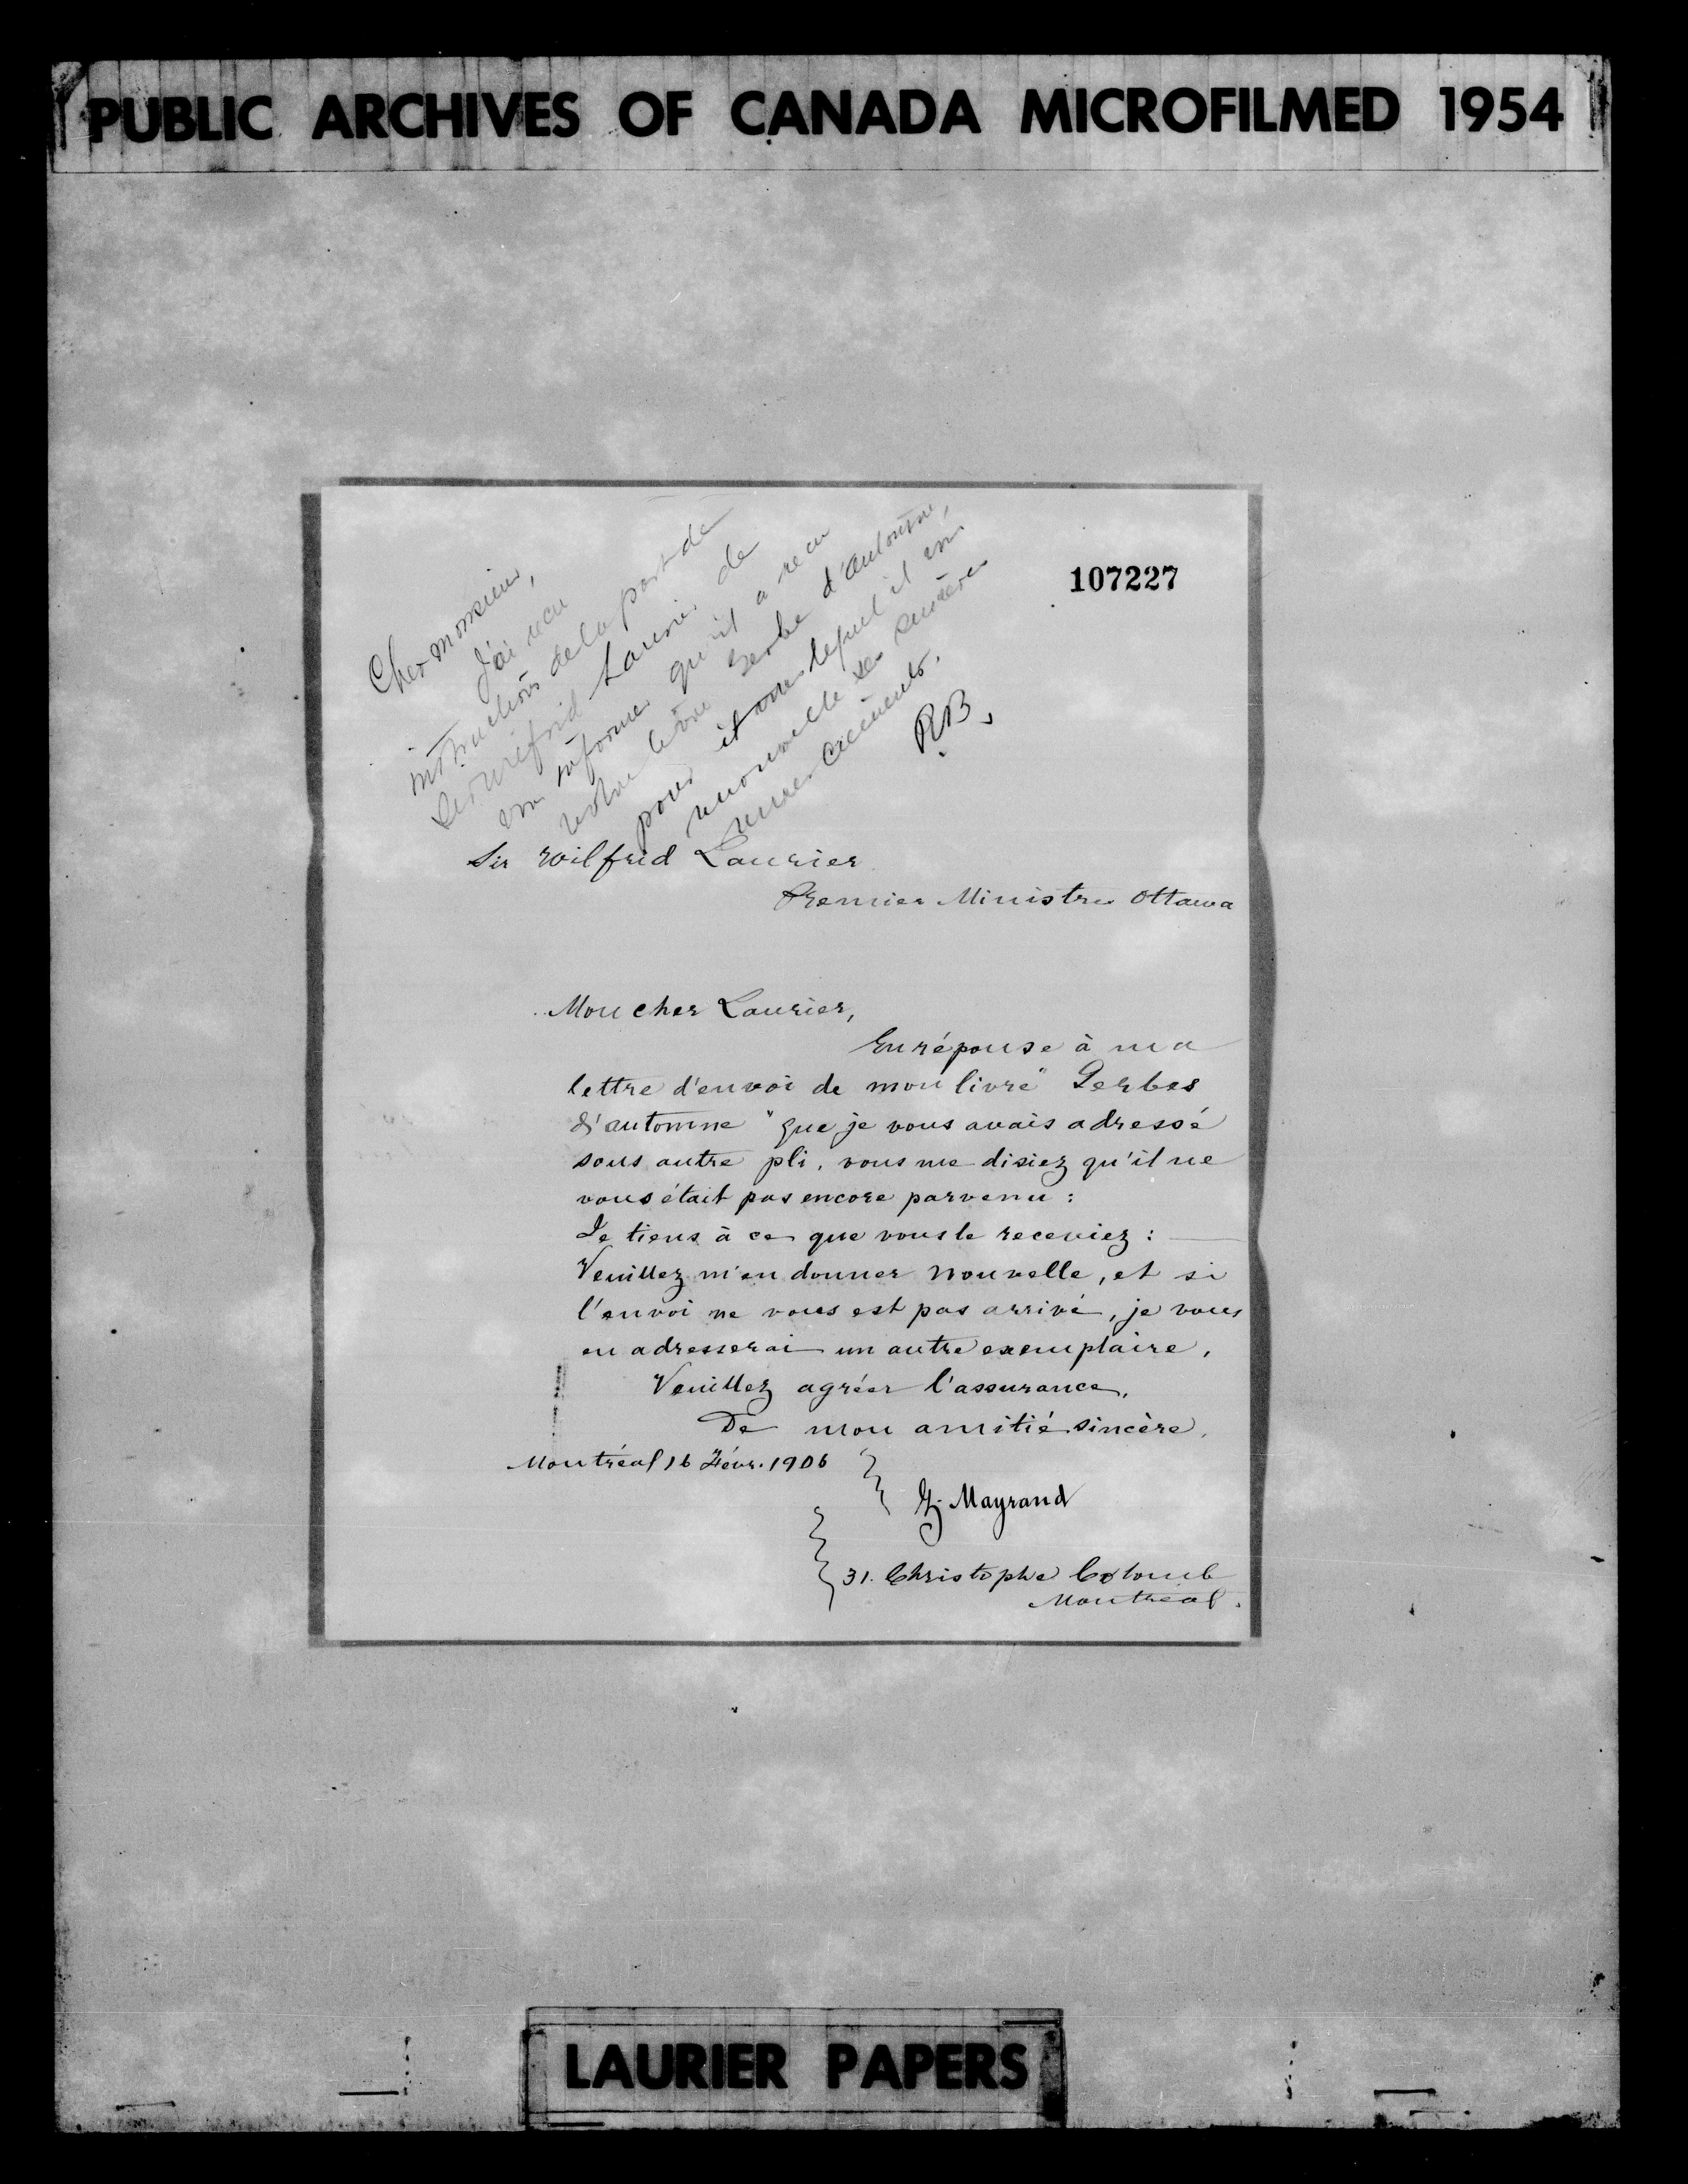 PUBLIC ARCHIVES OF CANADA MICROFILMED 1954
107227
Cher monsieur,
J'ai reçu
instructions de la part de
Sir Wilfrid Laurier de
vous informer qu'il a reçu
votre livre Gerbe d'automne,
pour lequel il vous
renouvelle ses sincères
remerciements.
RB.
Sir Wilfrid Laurier
Premier Ministre Ottawa
Mon cher Laurier,
En réponse à ma
lettre d'envoi de mon livre " Gerbes
d'automne " que je vous avais adressé
sous autre pli, vous me disiez qu'il ne
vous était pas encore parvenu :
Je tiens à ce que vous le receviez :
Veuillez m'en donner nouvelle, et si
l'envoi ne vous est pas arrivé, je vous
en adresserai un autre exemplaire.
Veuillez agréer l'assurance,
De mon amitié sincère.
Montréal 16 Févr. 1906
Mayrand
31. Christophe Colomb
Montréal.
LAURIER PAPERS